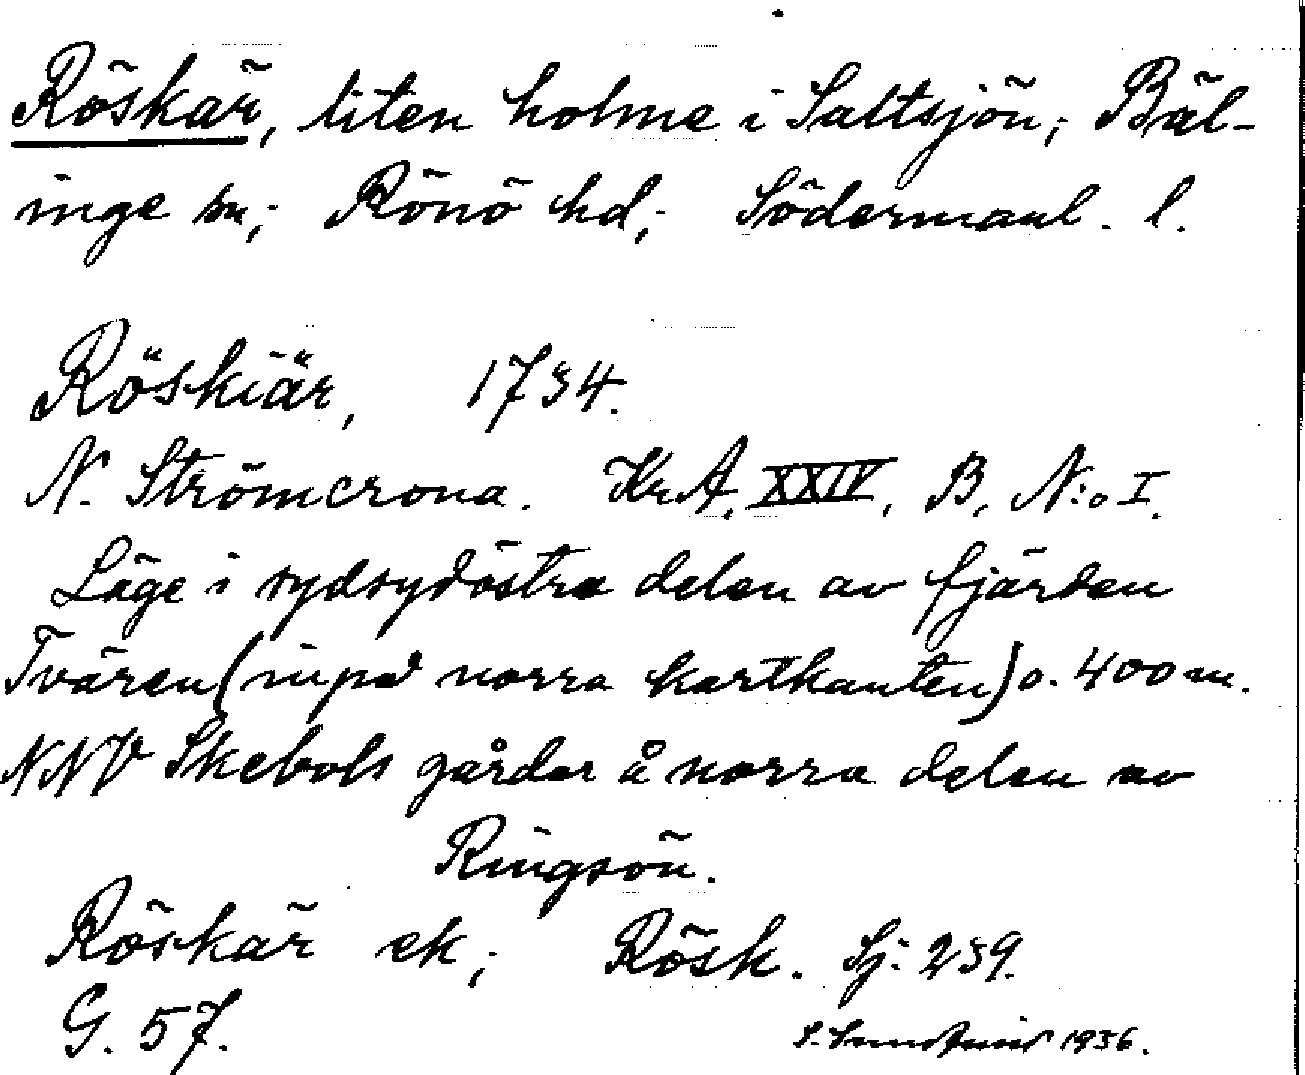 Röskär, liten holme i Saltsjön; Bäl-
inge sn; Rönö hd; Södermanl. l.
Röskiär, 1734.
N. Strömcrona. Kr.A. XXIV, B, N:o I.
Läge i sydsydöstra delen av fjärden
Tvären (inpå norra kartkanten) o. 400 m.
NNV Skebols gårdar å norra delen av
Ringsön.
Röskär ek; Rösk. Sj: 239.
G. 57.
1936.